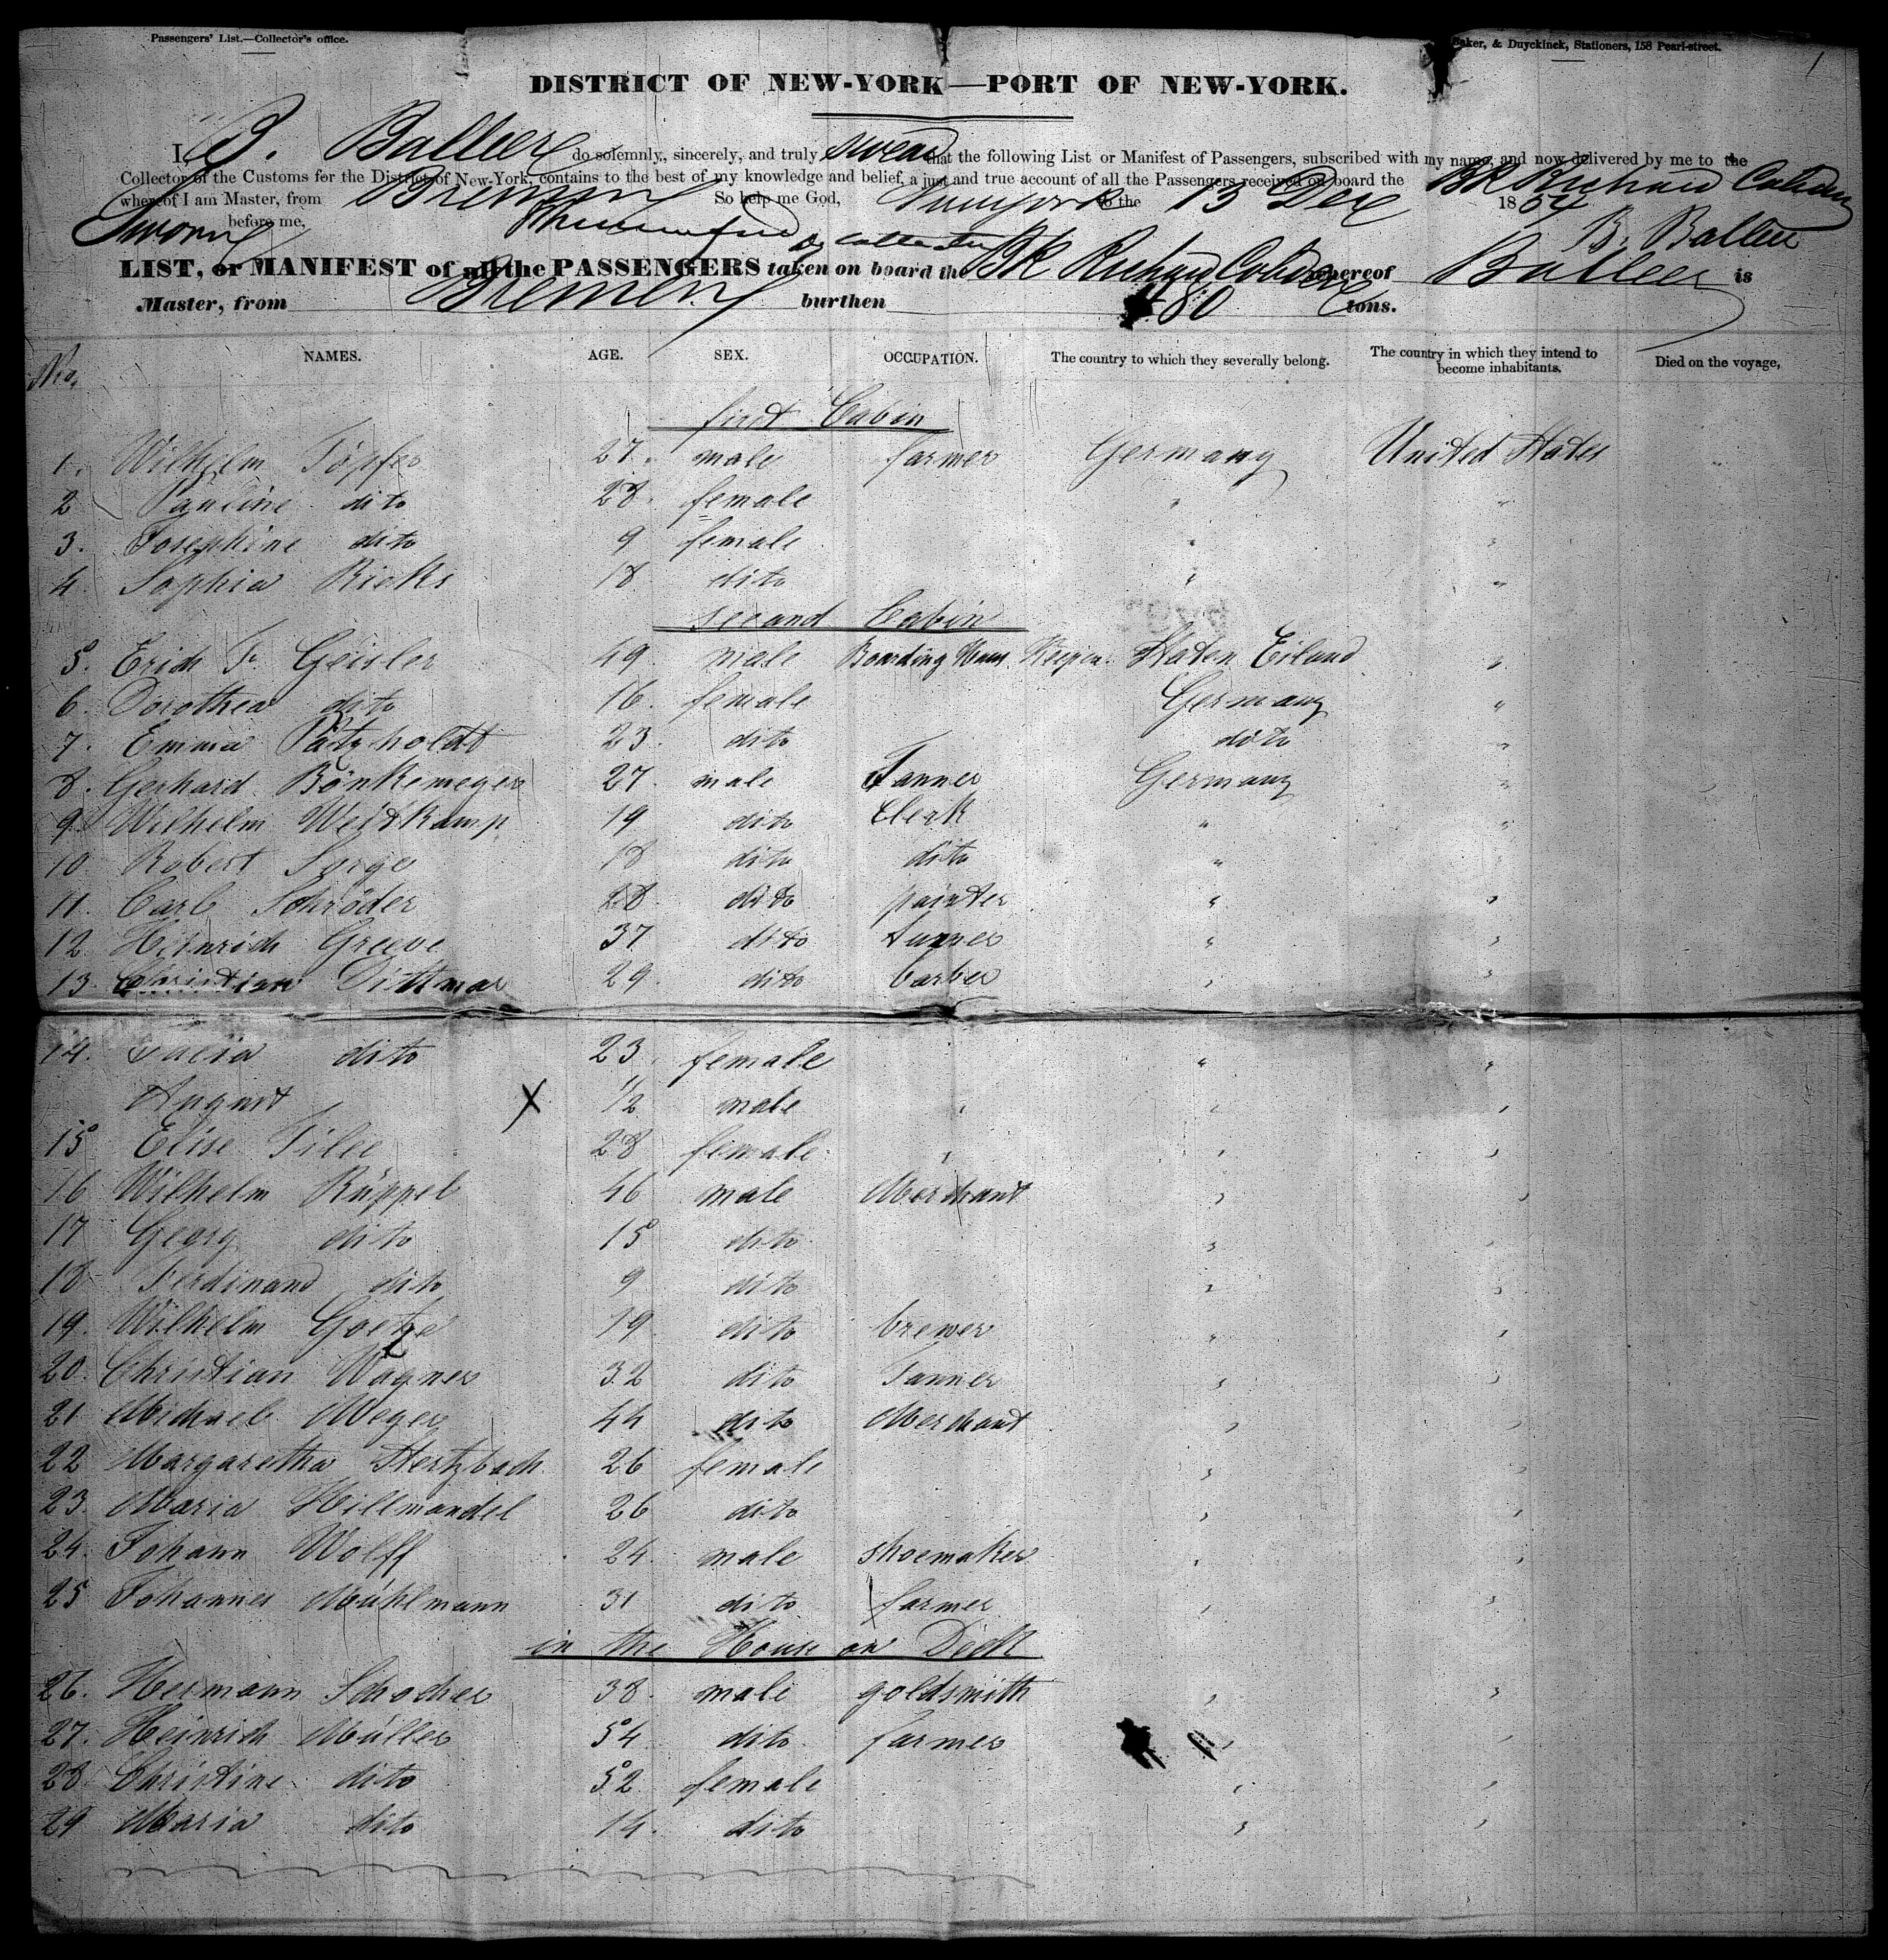 Passengers' List.—Collector's office.
Baker, & Duyckinck, Stationers, 158 Pearl-street.
1
DISTRICT OF NEW-YORK—PORT OF NEW-YORK.
I, B. Balleer do solemnly, sincerely, and truly swear that the following List or Manifest of Passengers, subscribed with my name, and now delivered by me to the
Collector of the Customs for the District of New-York, contains to the best of my knowledge and belief, a just and true account of all the Passengers received on board the Bk Richard Cobden
whereof I am Master, from Bremen So help me God, to the 13 Dec 1854
Sworn before me, B. Balleer
LIST, or MANIFEST of all the PASSENGERS taken on board the Bk Richard Cobden whereof Balleer is
Master, from Bremen burthen 480 tons.
No. NAMES. AGE. SEX. OCCUPATION. The country to which they severally belong. The country in which they intend to become inhabitants. Died on the voyage,
first Cabin
1. Wilhelm Töpfer 27. male farmer Germany United States
2 Pauline dito 28. female " "
3. Josephine dito 9 female " "
4. Sophia Ricks 18 dito " "
second Cabin
5. Erich Fr. Geisler 49. male Boarding Haus Keeper. Staten Eiland "
6. Dorothea dito 16. female Germany "
7. Emma Pätzholdt 23. dito dito "
8. Gerhard Bönkemeyer 27 male Tanner Germany "
9. Wilhelm Weitkamp 19 dito Clerk " "
10. Robert Sorge 18 dito dito " "
11. Carl Schröder 28. dito painter " "
12. Heinrich Greeve 37 dito turner " "
13. Christian Dittmar 29. dito barber " "
14. dito 23. female " "
August X 1/2 male " "
15 Elise Tilee 28 female " "
16 Wilhelm Rüppel 46 male Merchant " "
17 Georg dito 15 dito " "
18 Ferdinand dito 9 dito " "
19. Wilhelm Goetze 19. dito brewer " "
20. Christian Wagner 32 dito Tanner " "
21 Michael Meyer 44 dito Merchant " "
22 Margaretha Hertzbach 26 female " "
23. Maria Hillmandel 26 dito " "
24. Johann Wolff 24. male shoemaker " "
25 Johannes Mühlmann 31 dito farmer " "
in the House on Deck
26. Hermann Schocher 38. male goldsmith " "
27. Heinrich Müller 54. dito farmer " "
28 Christine dito 52. female " "
29 Maria dito 14. dito " "